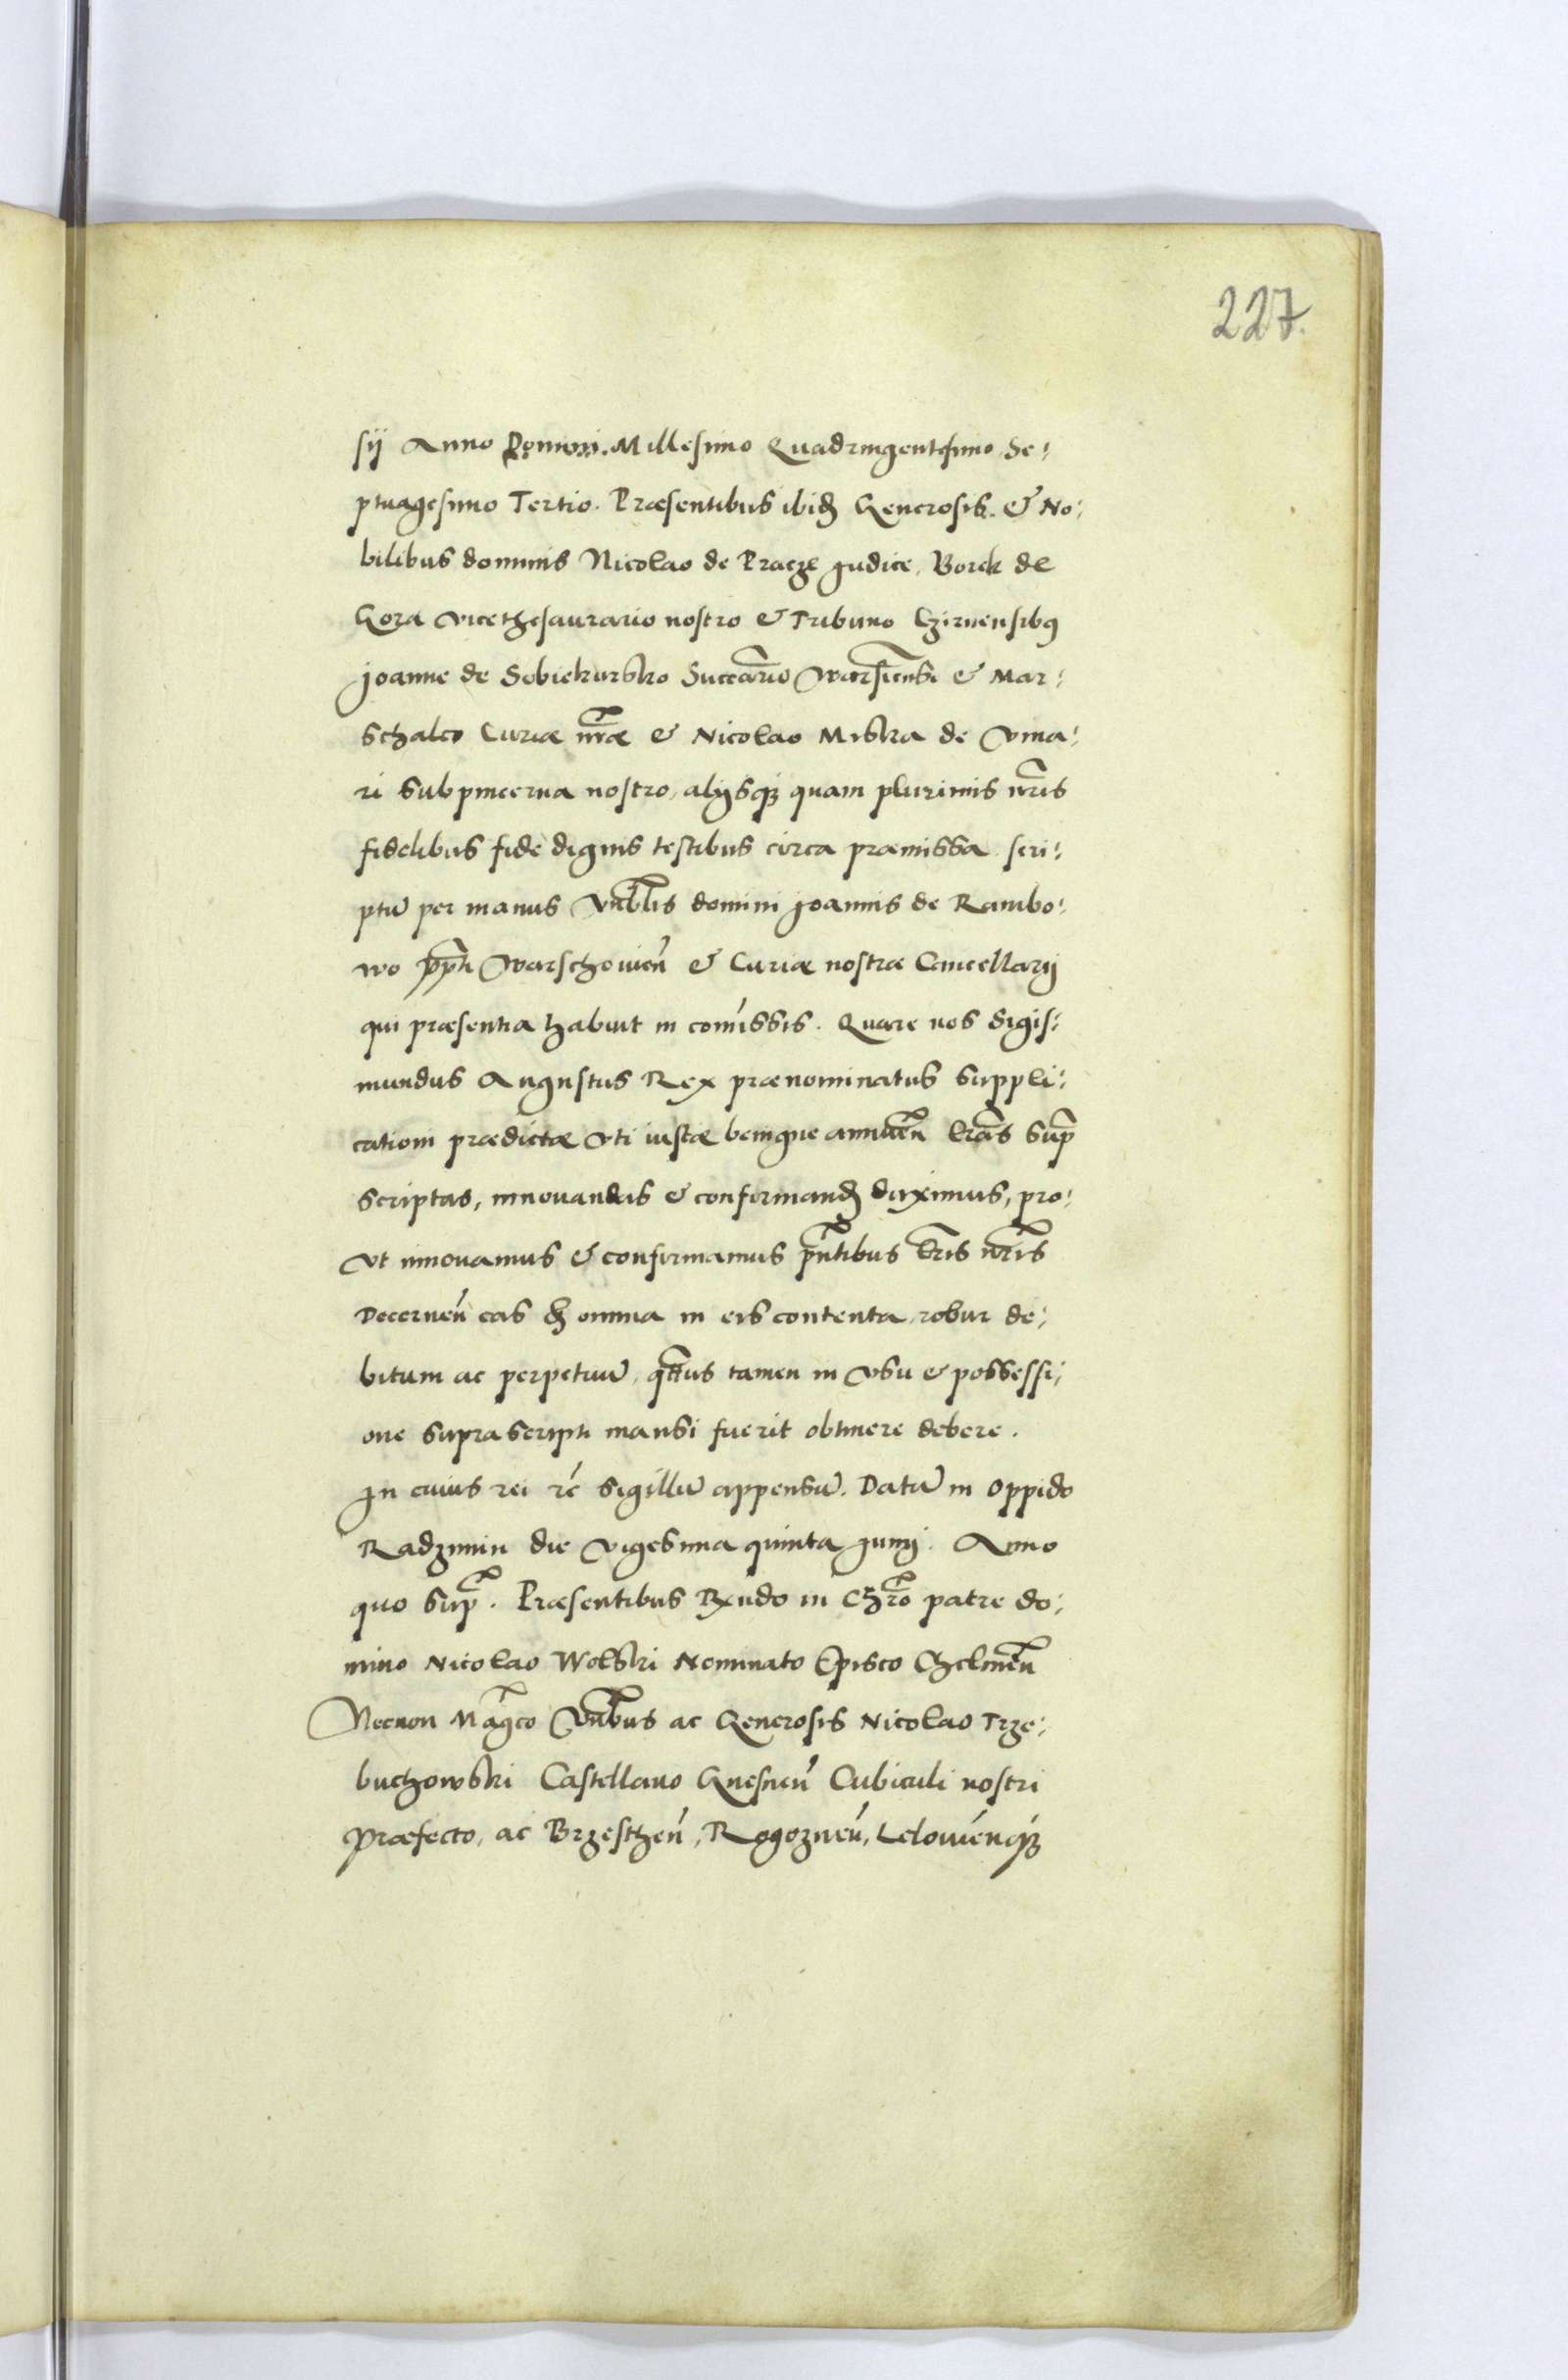 227.
sij Anno Domini. Millesimo Quadringentesimo Se:
ptuagesimo Tertio. Præsentibus ibid Generosis. & No:
bilibus dominis Nicolao de Pracze Judice, Borek de
Gora vicethesaurario nostro & Tribuno Czirnensibq
Joanne de Sobiekursko Succario Warsiensi & Mar:
schalco Curiæ nræ & Nicolao Miska de Vma:
ri subpincerna nostro, alijsq; quam plurimis nris
fidelibus fide dignis testibus circa præmissa. scri:
ptũ per manus Vnblis domini Joannis de Rambo:
wo ppti Warschouien & Curiæ nostræ Cancellarij
qui præsentia habuit in comissis. Quare nos Sigis:
mundus Augustus Rex prænominatus suppli:
cationi prædictæ vti iustæ benigne annuen lras sup
scriptas, innouandas & confirmand duximus, pro:
vt innouamus & confirmamus pntibus lris nris
Decernen eas & omnia in eis contenta, robur de:
bitum ac perpetuũ, qtnus tamen in vsu & possessi:
one suprascripti mansi fuerit obtinere debere.
In cuius rei rc sigillũ appensũ. Datũ in Oppido
Radzimin die vigesima quinta Junij. Anno
quo sup. Præsentibus Rxndo in Chro patre do:
mino Nicolao Wolski Nominato Episco Chelmen
Necnon Magco Vnbbus ac Generosis Nicolao Trze:
buchowski Castellano Gnesnen Cubiculi nostri
Præfecto, ac Brzesthen, Rogoznen, Lelouienq;